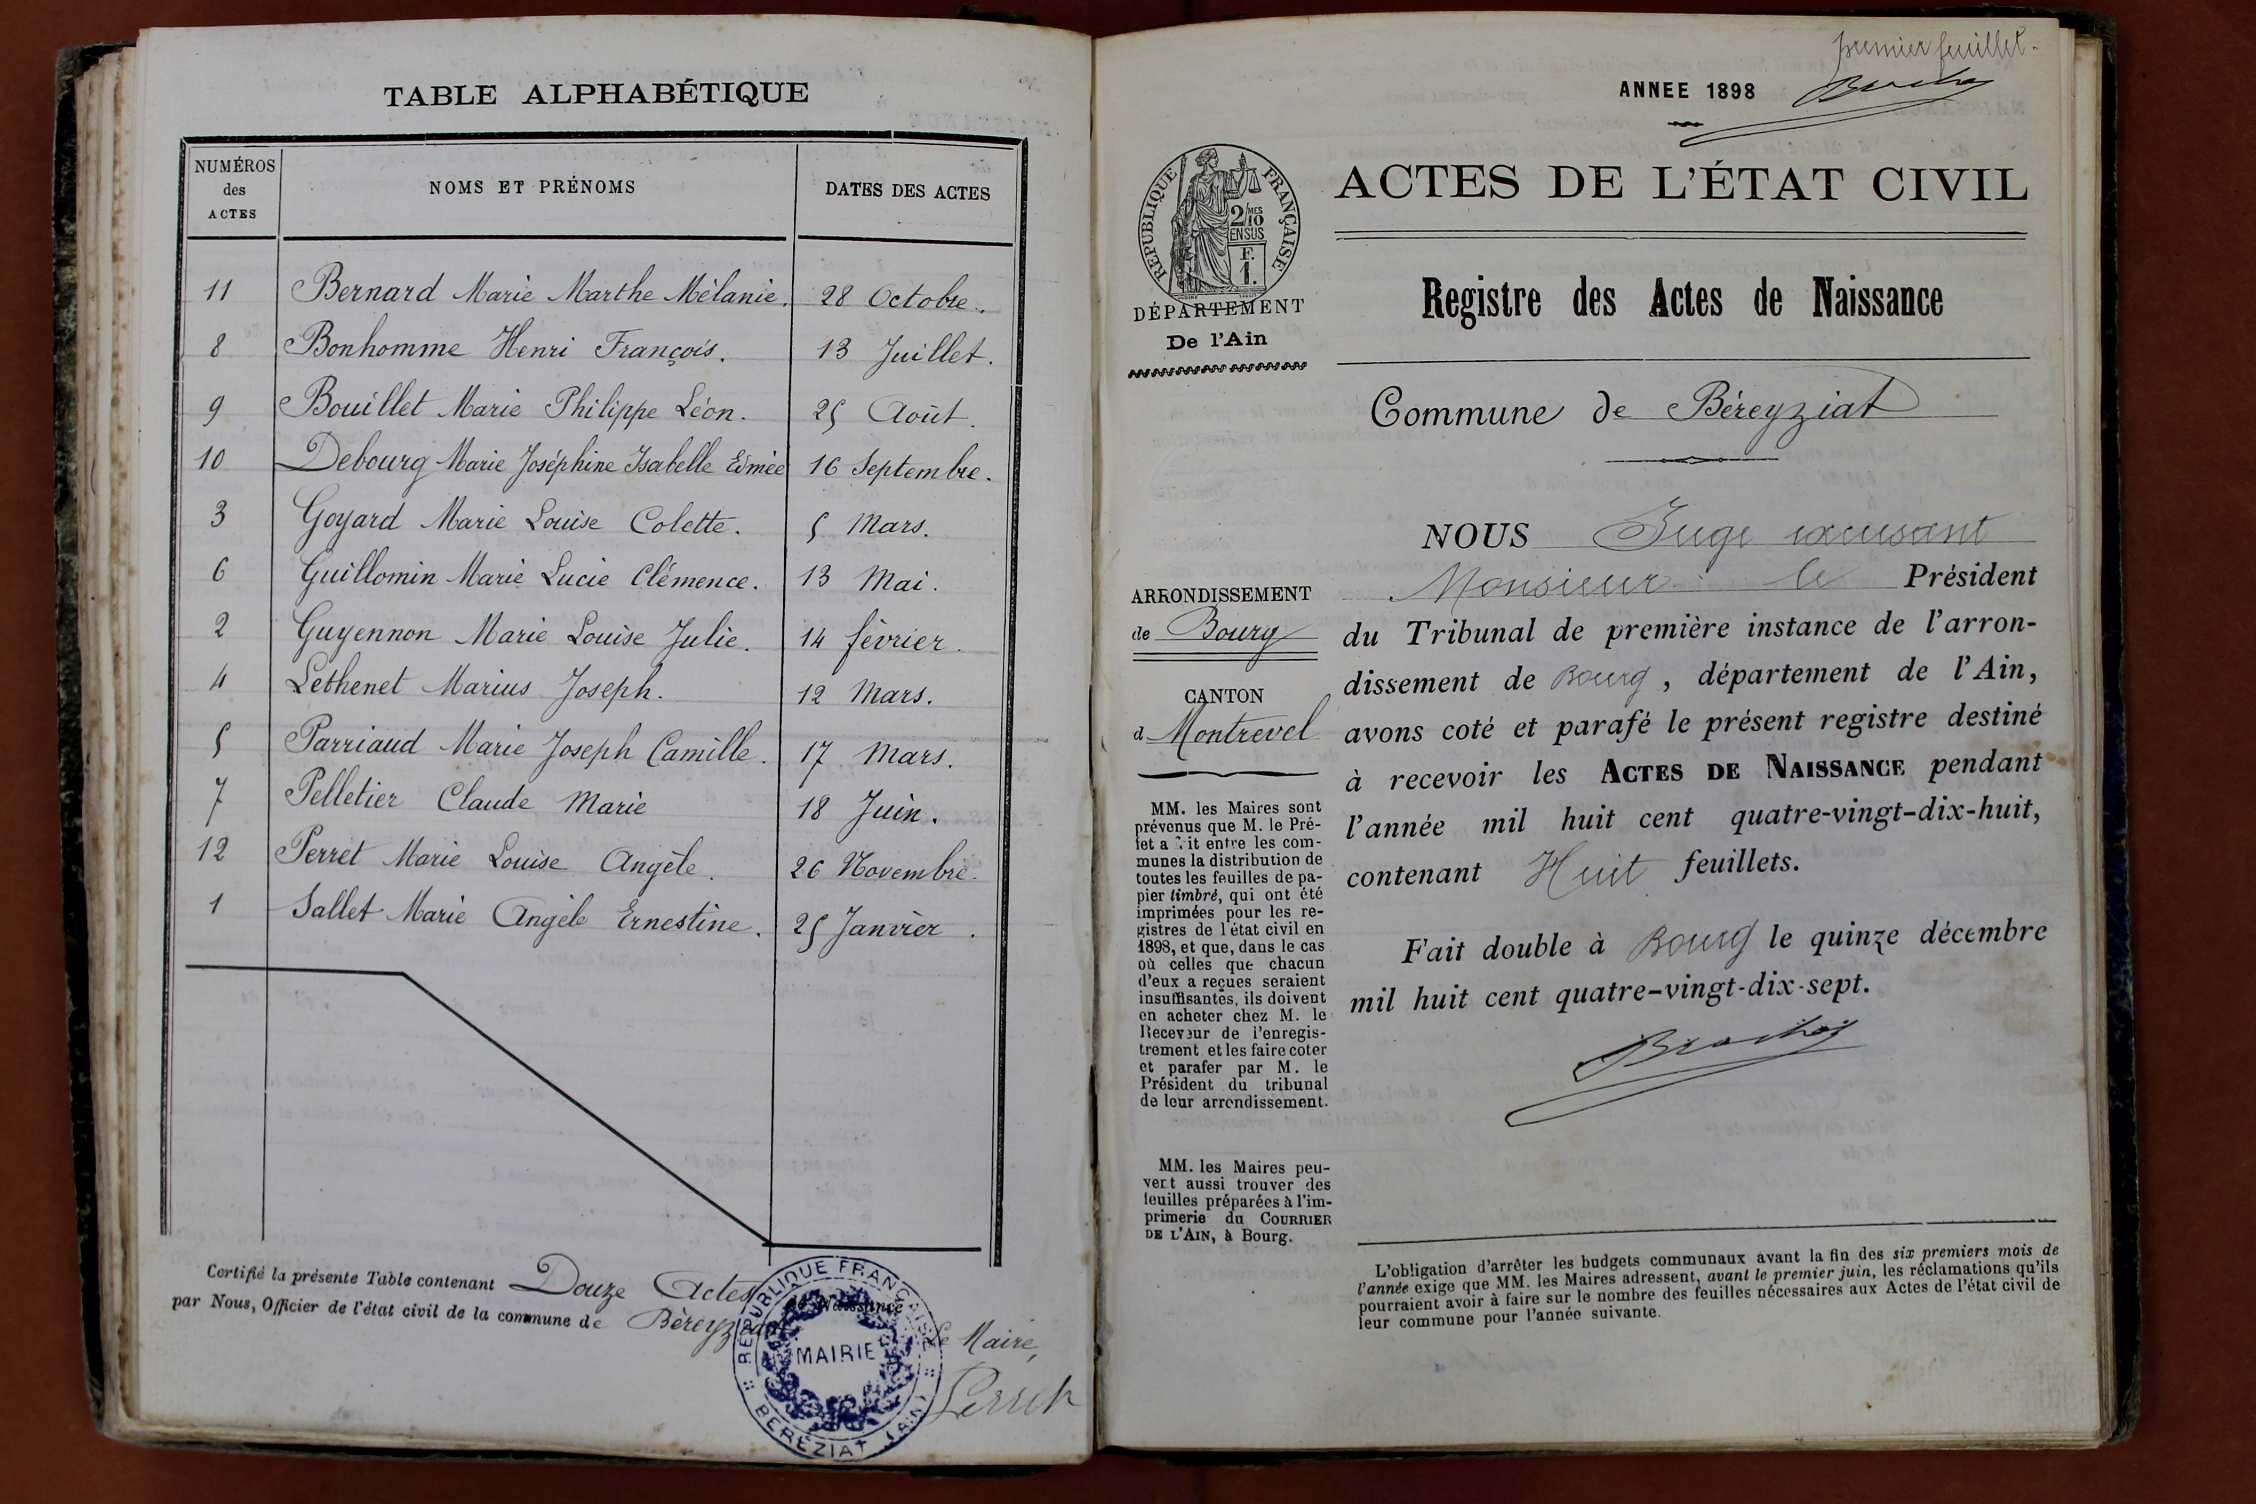 TABLE ALPHABÉTIQUE
NUMÉROS des ACTES | NOMS ET PRÉNOMS | DATES DES ACTES
11 Bernard Marie Marthe Mélanie. 28 Octobre.
8 Bonhomme Henri François. 13 Juillet.
9 Bouillet Marie Philippe Léon. 25 Août.
10 Debourg Marie Joséphine Isabelle Edmée 16 Septembre.
3 Goyard Marie Louise Colette. 5 Mars.
6 Guillomin Marie Lucie Clémence. 13 Mai.
2 Guyennon Marie Louise Julie. 14 février.
4 Lethenet Marius Joseph. 12 Mars.
5 Parriaud Marie Joseph Camille. 17 Mars.
7 Pelletier Claude Marie 18 Juin.
12 Perret Marie Louise Angèle. 26 Novembre.
1 Sallet Marie Angèle Ernestine. 25 Janvier.
Certifié la présente Table contenant Douze Actes de Naissance
par Nous, Officier de l'état civil de la commune de Béreyziat
Le Maire,
Perret
RÉPUBLIQUE FRANÇAISE
MAIRIE
BÉRÉZIAT (AIN)
premier feuillet.
ANNEE 1898
RÉPUBLIQUE FRANÇAISE
2/10 MES
EN SUS
F.
1.
ACTES DE L'ÉTAT CIVIL
DÉPARTEMENT
De l'Ain
Registre des Actes de Naissance
Commune de Béreyziat
ARRONDISSEMENT
de Bourg
CANTON
d Montrevel
MM. les Maires sont
prévenus que M. le Pré-
fet a fait entre les com-
munes la distribution de
toutes les feuilles de pa-
pier timbré, qui ont été
imprimées pour les re-
gistres de l'état civil en
1898, et que, dans le cas
où celles que chacun
d'eux a reçues seraient
insuffisantes, ils doivent
en acheter chez M. le
Receveur de l'enregis-
trement et les faire coter
et parafer par M. le
Président du tribunal
de leur arrondissement.
MM. les Maires peu-
vent aussi trouver des
feuilles préparées à l'im-
primerie du COURRIER
DE L'AIN, à Bourg.
NOUS Juge excusant
Monsieur le Président
du Tribunal de première instance de l'arron-
dissement de Bourg, département de l'Ain,
avons coté et parafé le présent registre destiné
à recevoir les ACTES DE NAISSANCE pendant
l'année mil huit cent quatre-vingt-dix-huit,
contenant Huit feuillets.
Fait double à Bourg le quinze décembre
mil huit cent quatre-vingt-dix-sept.
L'obligation d'arrêter les budgets communaux avant la fin des six premiers mois de
l'année exige que MM. les Maires adressent, avant le premier juin, les réclamations qu'ils
pourraient avoir à faire sur le nombre des feuilles nécessaires aux Actes de l'état civil de
leur commune pour l'année suivante.